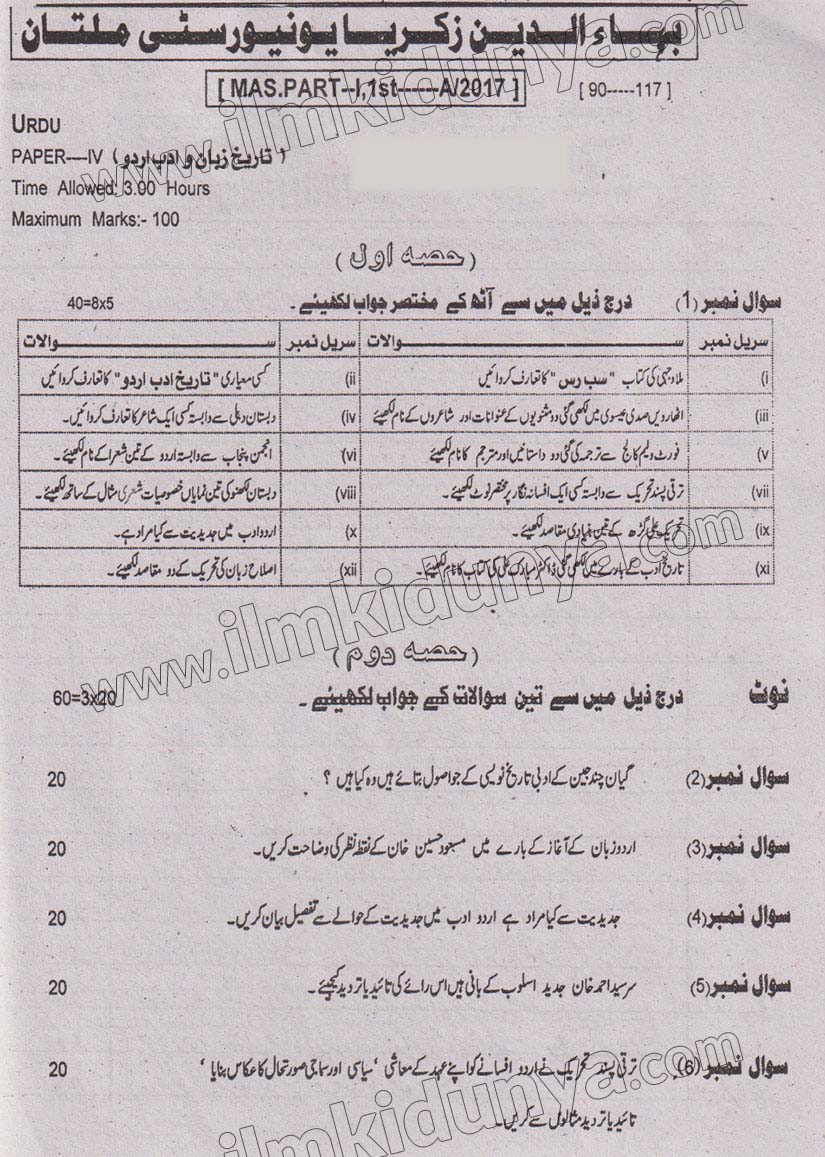 بہاء الدین زکریا یونیورسٹی ملتان
[ MAS.PART--I,1st------A/2017 ] [ 90-----117 ]
URDU
PAPER----IV ( تاریخ زبان و ادب اردو )
Time Allowed: 3.00 Hours
Maximum Marks:- 100
( حصہ اول )
سوال نمبر (1) درج ذیل میں سے آٹھ کے مختصر جواب لکھیئے ۔ 40=8x5
سریل نمبر ســـــــوالات سریل نمبر ســـــــوالات
(i ملا وجہی کی کتاب "سب رس" کا تعارف کروائیں (ii کسی معیاری "تاریخ ادب اردو" کا تعارف کروائیں
(iii اٹھارویں صدی عیسوی میں لکھی گئی دو مثنویوں کے عنوانات اور شاعروں کے نام لکھیئے (iv دبستان دہلی سے وابستہ کسی ایک شاعر کا تعارف کروائیں۔
(v فورٹ ولیم کالج سے ترجمہ کی گئی دو داستانیں اور مترجم کا نام لکھیئے (vi انجمن پنجاب سے وابستہ اردو کے تین شعرا کے نام لکھیئے۔
(vii ترقی پسند تحریک سے وابستہ کسی ایک افسانہ نگار پر مختصر نوٹ لکھیئے۔ (viii دبستان لکھنو کی تین نمایاں خصوصیات شعری مثال کے ساتھ لکھیئے۔
(ix تحریک علی گڑھ کے تین بنیادی مقاصد لکھیئے۔ (x اردو ادب میں جدیدیت سے کیا مراد ہے۔
(xi تاریخ ادب کے بارے میں لکھی گئی ڈاکٹر مبارک علی کی کتاب کا نام لکھیئے۔ (xii اصلاح زبان کی تحریک کے دو مقاصد لکھیئے۔
( حصہ دوم )
نوٹ درج ذیل میں سے تین سوالات کے جواب لکھیئے ۔ 60=3x20
سوال نمبر (2) گیان چند جین کے ادبی تاریخ نویسی کے جو اصول بتائے ہیں وہ کیا ہیں ؟ 20
سوال نمبر (3) اردو زبان کے آغاز کے بارے میں مسعود حسین خان کے نقطہ نظر کی وضاحت کریں۔ 20
سوال نمبر (4) جدیدیت سے کیا مراد ہے اردو ادب میں جدیدیت کے حوالے سے تفصیل بیان کریں۔ 20
سوال نمبر (5) سرسید احمد خان جدید اسلوب کے بانی ہیں اس رائے کی تائید یا تردید کیجیئے۔ 20
سوال نمبر (6) ترقی پسند تحریک نے اردو افسانے کو اپنے عہد کے معاشی ' سیاسی اور سماجی صورتحال کا عکاس بنایا ' 20
تائید یا تردید مثالوں سے کریں۔
www.ilmkidunya.com
www.ilmkidunya.com
www.ilmkidunya.com